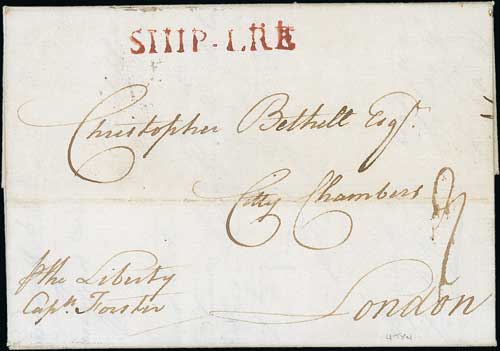 SHIP-LRE
Christopher Bethell Esqr.
Citty Chambers
London
pr the Liberty
Captn. Forster